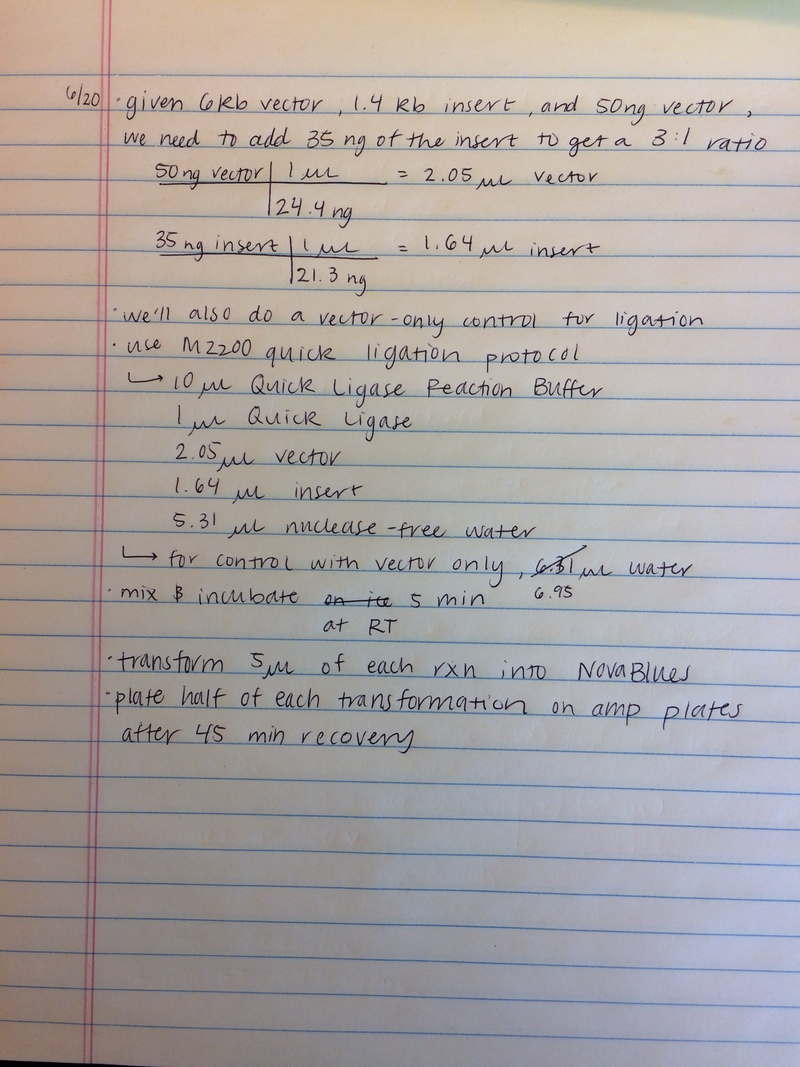 6/20 · given 6kb vector, 1.4 kb insert, and 50ng vector,
we need to add 35 ng of the insert to get a 3:1 ratio
50 ng vector | 1 µL = 2.05 µL vector
24.4 ng
35 ng insert | 1 µL = 1.64 µL insert
21.3 ng
· we'll also do a vector-only control for ligation
· use M2200 quick ligation protocol
↳ 10 µL Quick Ligase Reaction Buffer
1 µL Quick Ligase
2.05 µL vector
1.64 µL insert
5.31 µL nuclease-free water
↳ for control with vector only, 6.31 µL water
6.95
· mix & incubate on ice 5 min
at RT
· transform 5µL of each rxn into NovaBlues
· plate half of each transformation on amp plates
after 45 min recovery